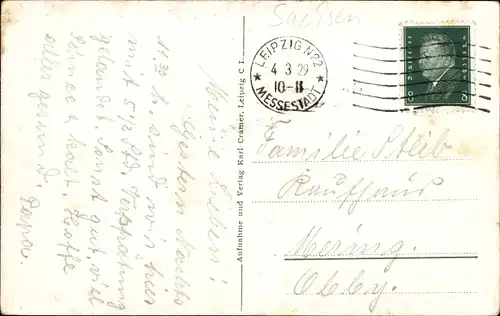 Sachsen
LEIPZIG N22
4.3.29
10-11
MESSESTADT
8
8
Familie Steib
Kaufhaus
Mering.
Obby.
Aufnahme und Verlag Karl Cramer, Leipzig C 1.
Meine Lieben!
Gestern Nachts
11 30 h. sind wir hier
mit 5 1/2 Std. Verspätung
gelandet. Sonst gut, viel
Schnee u. kalt. Hoffe
alles gesund.
Papa.